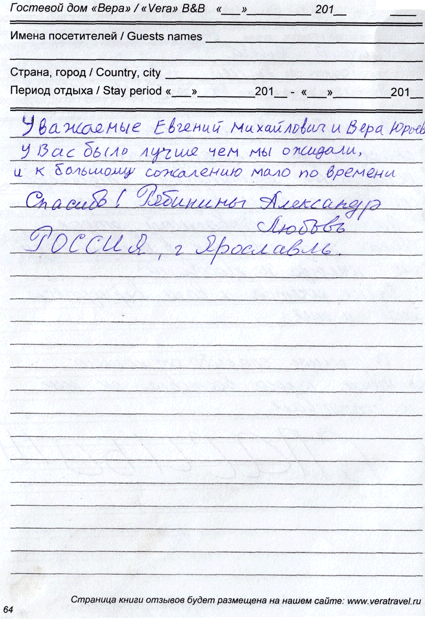 Гостевой дом «Вера» / «Vera» B&B «___»__________ 201__ ____
Имена посетителей / Guests names
Страна, город / Country, city
Период отдыха / Stay period «___»_________201__ - «___»_________201_
Уважаемые Евгений Михайлович и Вера Юрьев
у Вас было лучше чем мы ожидали,
и к большому сожалению мало по времени
Спасибо! Рябинины Александр
Любовь
РОССИЯ, г Ярославль.
Страница книги отзывов будет размещена на нашем сайте: www.veratravel.ru
64